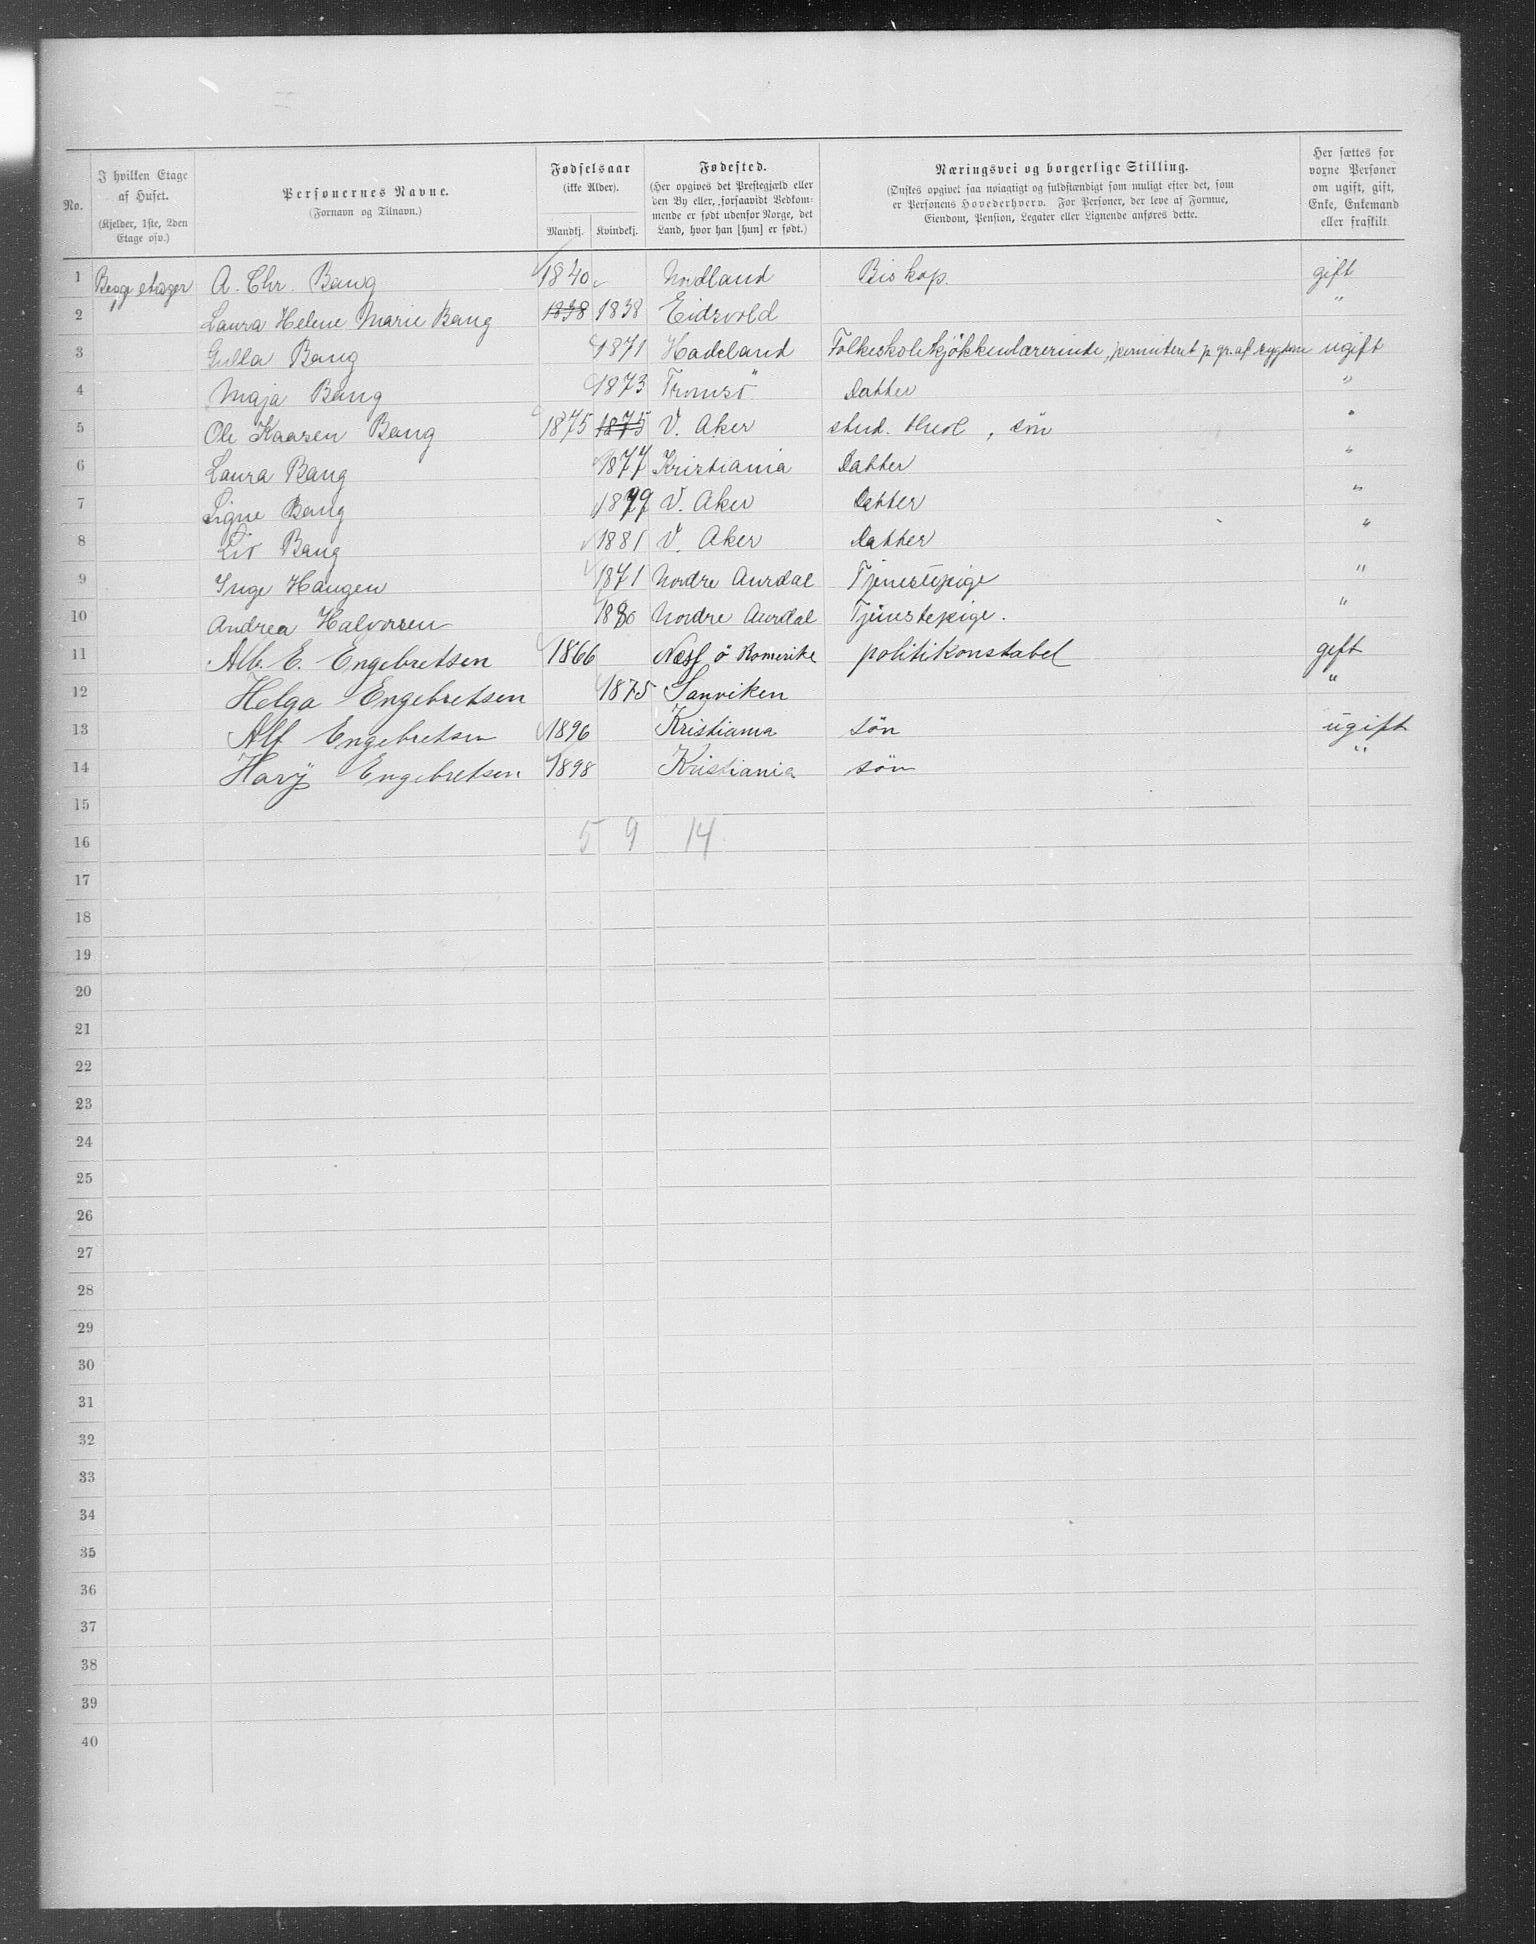 No.
I hvilken Etage af Huset.
(Kjelder, 1ste, 2den Etage osv.)
Personernes Navne.
(Fornavn og Tilnavn.)
Fødselsaar
(ikke Alder).
Mandkj. Kvindekj.
Fødested.
(Her opgives det Prestegjæld eller
den By eller, forsaavidt Vedkom-
mende er født udenfor Norge, det
Land, hvor han [hun] er født.)
Næringsvei og borgerlige Stilling.
(Ønskes opgivet saa nøiagtigt og fuldstændigt som muligt efter det, som
er Personens Hovederhverv. For Personer, der leve af Formue,
Eiendom, Pension, Legater eller Lignende anføres dette.
Her sættes for
voxne Personer
om ugift, gift,
Enke, Enkemand
eller fraskilt.
1 Begge etager A. Chr. Bang 1840 Nordland Biskop. gift
2 Laura Helene Marie Bang 1838 1838 Eidsvold "
3 Gulla Bang 1871 Hadeland Folkeskolekjøkkenlærerinde, permiteret p. gr. af sygdom ugift
4 Maja Bang 1873 Tromsö Datter "
5 Ole Kaarsen Bang 1875 1875 V. Aker stud. theol, sön "
6 Laura Bang 1877 Kristiania Datter "
7 Signe Bang 1879 V. Aker Datter "
8 Liv Bang 1881 V. Aker Datter "
9 Inge Haugen 1871 Nordre Aurdal Tjenestepige "
10 Andrea Halvorsen 1880 Nordre Aurdal Tjenestepige. "
11 Alb. E. Engebretsen 1866 Næss ö Romerike politikonstabel gift
12 Helga Engebretsen 1875 Sanviken "
13 Alf Engebretsen 1896 Kristiania sön ugift
14 Harÿ Engebretsen 1898 Kristiania sön "
15
16 5 9 14
17
18
19
20
21
22
23
24
25
26
27
28
29
30
31
32
33
34
35
36
37
38
39
40